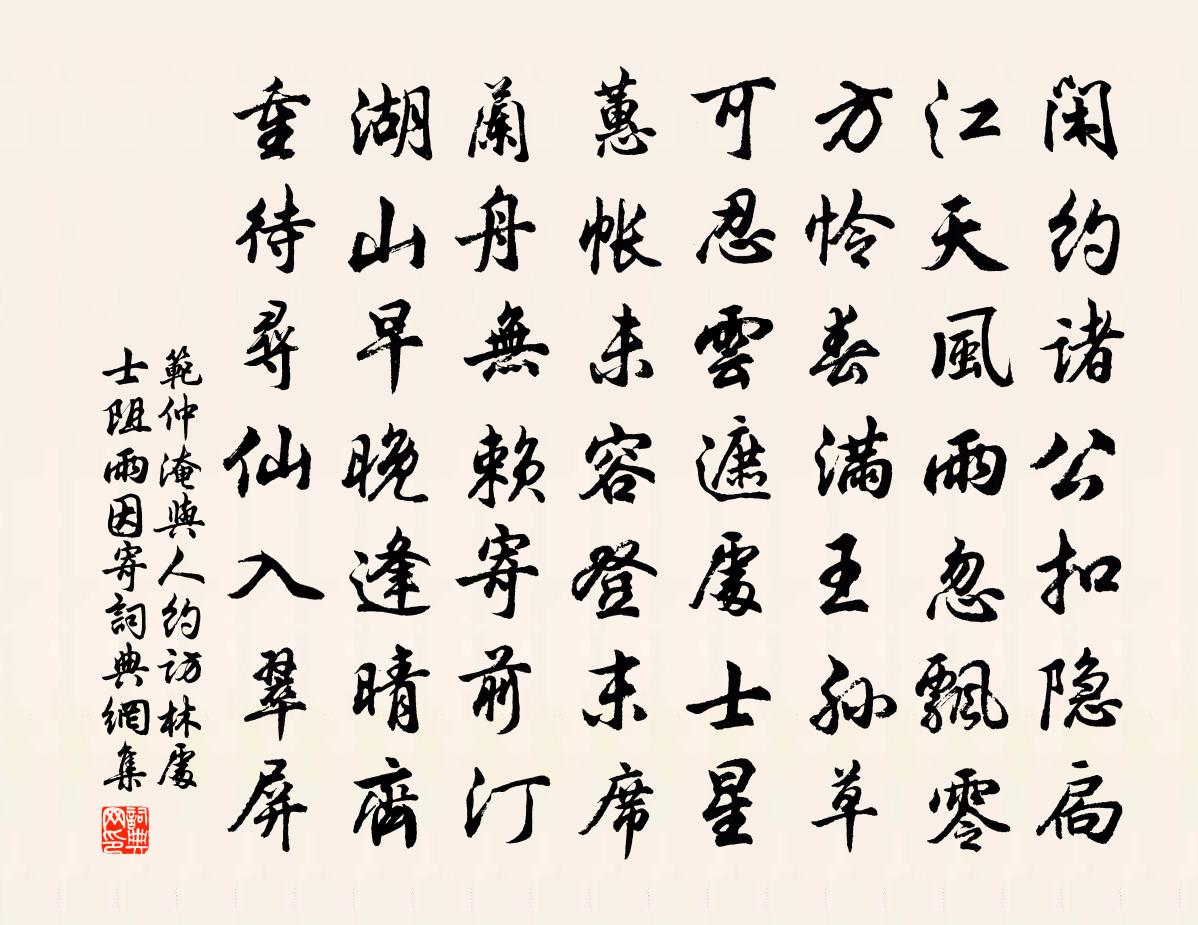 閑約諸公扣隐扃
江天風雨忽飄零
方怜春滿王孫草
可忍雲遮處士星
蕙帳未容登末席
蘭舟無賴寄前汀
湖山早晚逢晴霽
重待尋仙入翠屏
範仲淹與人約訪林處
士阻雨因寄詞典網集
詞典
网印